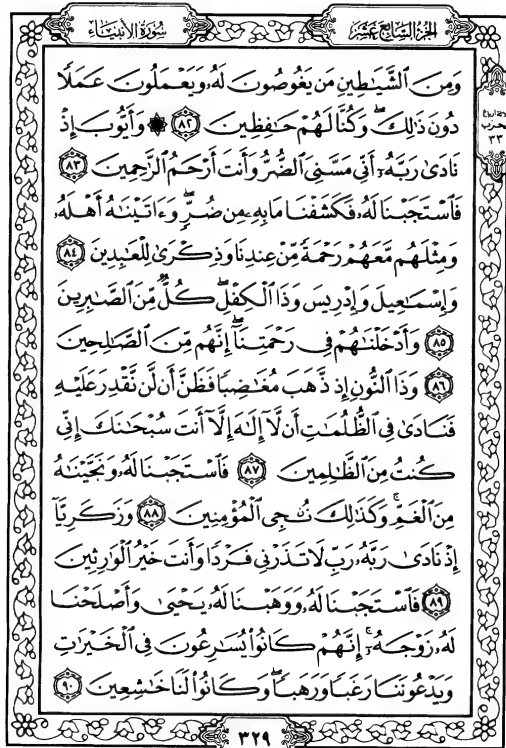 سُورَةُ الأَنبِيَاء
الجُزْءُ السَّابِعُ عَشَرَ
وَمِنَ ٱلشَّيَٰطِينِ مَن يَغُوصُونَ لَهُۥ وَيَعْمَلُونَ عَمَلًا
دُونَ ذَٰلِكَ ۖ وَكُنَّا لَهُمْ حَٰفِظِينَ ٨٢ ۞ وَأَيُّوبَ إِذْ
نَادَىٰ رَبَّهُۥٓ أَنِّى مَسَّنِىَ ٱلضُّرُّ وَأَنتَ أَرْحَمُ ٱلرَّٰحِمِينَ ٨٣
فَٱسْتَجَبْنَا لَهُۥ فَكَشَفْنَا مَا بِهِۦ مِن ضُرٍّ ۖ وَءَاتَيْنَٰهُ أَهْلَهُۥ
وَمِثْلَهُم مَّعَهُمْ رَحْمَةً مِّنْ عِندِنَا وَذِكْرَىٰ لِلْعَٰبِدِينَ ٨٤
وَإِسْمَٰعِيلَ وَإِدْرِيسَ وَذَا ٱلْكِفْلِ ۖ كُلٌّ مِّنَ ٱلصَّٰبِرِينَ
٨٥ وَأَدْخَلْنَٰهُمْ فِى رَحْمَتِنَآ ۖ إِنَّهُم مِّنَ ٱلصَّٰلِحِينَ
٨٦ وَذَا ٱلنُّونِ إِذ ذَّهَبَ مُغَٰضِبًا فَظَنَّ أَن لَّن نَّقْدِرَ عَلَيْهِ
فَنَادَىٰ فِى ٱلظُّلُمَٰتِ أَن لَّآ إِلَٰهَ إِلَّآ أَنتَ سُبْحَٰنَكَ إِنِّى
كُنتُ مِنَ ٱلظَّٰلِمِينَ ٨٧ فَٱسْتَجَبْنَا لَهُۥ وَنَجَّيْنَٰهُ
مِنَ ٱلْغَمِّ ۚ وَكَذَٰلِكَ نُۨجِى ٱلْمُؤْمِنِينَ ٨٨ وَزَكَرِيَّآ
إِذْ نَادَىٰ رَبَّهُۥ رَبِّ لَا تَذَرْنِى فَرْدًا وَأَنتَ خَيْرُ ٱلْوَٰرِثِينَ
٨٩ فَٱسْتَجَبْنَا لَهُۥ وَوَهَبْنَا لَهُۥ يَحْيَىٰ وَأَصْلَحْنَا
لَهُۥ زَوْجَهُۥٓ ۚ إِنَّهُمْ كَانُوا۟ يُسَٰرِعُونَ فِى ٱلْخَيْرَٰتِ
وَيَدْعُونَنَا رَغَبًا وَرَهَبًا ۖ وَكَانُوا۟ لَنَا خَٰشِعِينَ ٩٠
حزب
٣٣
٣٢٩